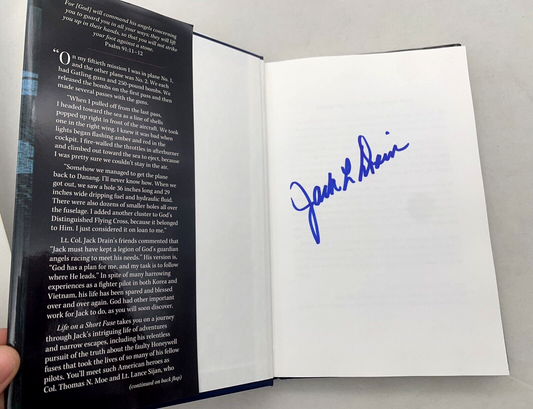 For [God] will command his angels concerning
you to guard you in all your ways; they will lift
you up in their hands, so that you will not strike
your foot against a stone.
Psalm 91:11–12
"On my fiftieth mission I was in plane No. 1,
and the other plane was No. 2. We each
had Gatling guns and 250-pound bombs. We
released the bombs on the first pass and then
made several passes with the guns.
"When I pulled off from the last pass,
I headed toward the sea as a line of shells
popped up right in front of the aircraft. We took
one in the right wing. I knew it was bad when
lights began flashing amber and red in the
cockpit. I fire-walled the throttles in afterburner
and climbed out toward the sea to eject, because
I was pretty sure we couldn't stay in the air.
"Somehow we managed to get the plane
back to Danang. I'll never know how. When we
got out, we saw a hole 36 inches long and 29
inches wide dripping fuel and hydraulic fluid.
There were also dozens of smaller holes all over
the fuselage. I added another cluster to God's
Distinguished Flying Cross, because it belonged
to Him. I just considered it on loan to me."
Lt. Col. Jack Drain's friends commented that
"Jack must have kept a legion of God's guardian
angels racing to meet his needs." His version is,
"God has a plan for me, and my task is to follow
where He leads." In spite of many harrowing
experiences as a fighter pilot in both Korea and
Vietnam, his life has been spared and blessed
over and over again. God had other important
work for Jack to do, as you will soon discover.
Life on a Short Fuse takes you on a journey
through Jack's intriguing life of adventures
and narrow escapes, including his relentless
pursuit of the truth about the faulty Honeywell
fuses that took the lives of so many of his fellow
pilots. You'll meet such American heroes as
Col. Thomas N. Moe and Lt. Lance Sijan, who
(continued on back flap)
Jack L Drain